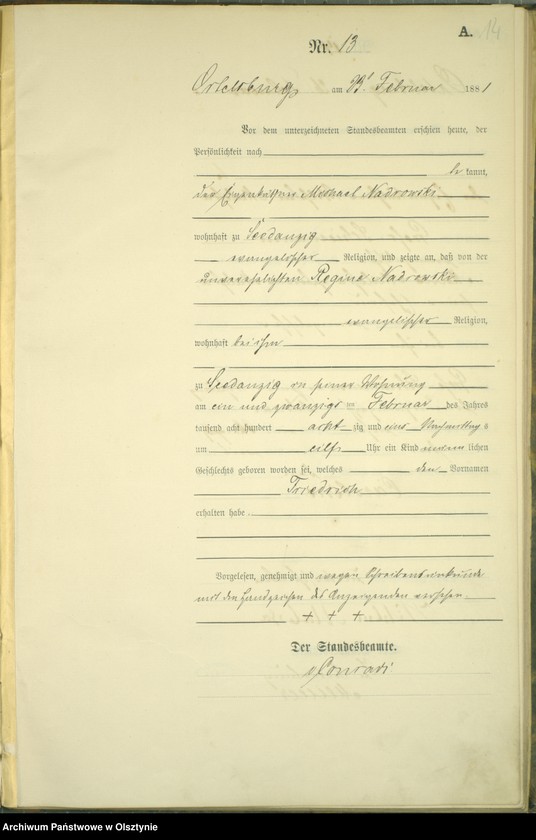 A. 14
Nr. 13
Ortelsburg am 23t Februar 1881
Vor dem unterzeichneten Standesbeamten erschien heute, der
Persönlichkeit nach
be kannt,
der Eigenkäthner Michael Nadrowski
wohnhaft zu Seedanzig
evangelischer Religion, und zeigte an, daß von der
unverehelichten Regine Nadrowski
evangelischer Religion,
wohnhaft bei ihm
zu Seedanzig in seiner Wohnung
am ein und zwanzigsten Februar des Jahres
tausend acht hundert acht zig und eins Nachmittags
um eilf Uhr ein Kind männlichen
Geschlechts geboren worden sei, welches den Vornamen
Friedrich
erhalten habe.
Vorgelesen, genehmigt und wegen Schreibensunkunde
mit den Handzeichen des Anzeigenden versehen
+ + +
Der Standesbeamte.
Conradi
Archiwum Państwowe w Olsztynie